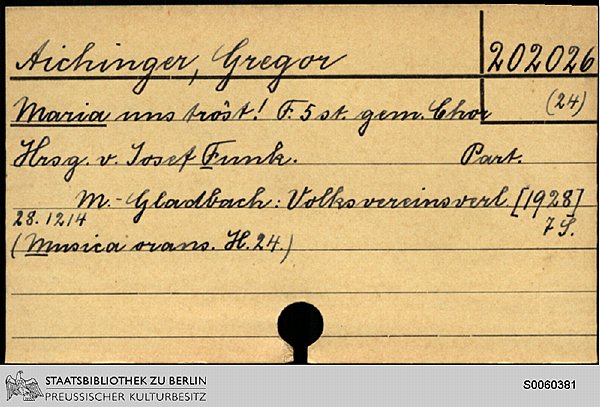 Aichinger, Gregor 202026
Maria uns tröst! F. 5 st. gem. Chor (24)
Hrsg. v. Josef Funk. Part.
M.-Gladbach: Volksvereinsverl [1928]
28.1214 7 S.
(Musica orans. H. 24.)
STAATSBIBLIOTHEK ZU BERLIN
PREUSSISCHER KULTURBESITZ
S0060381